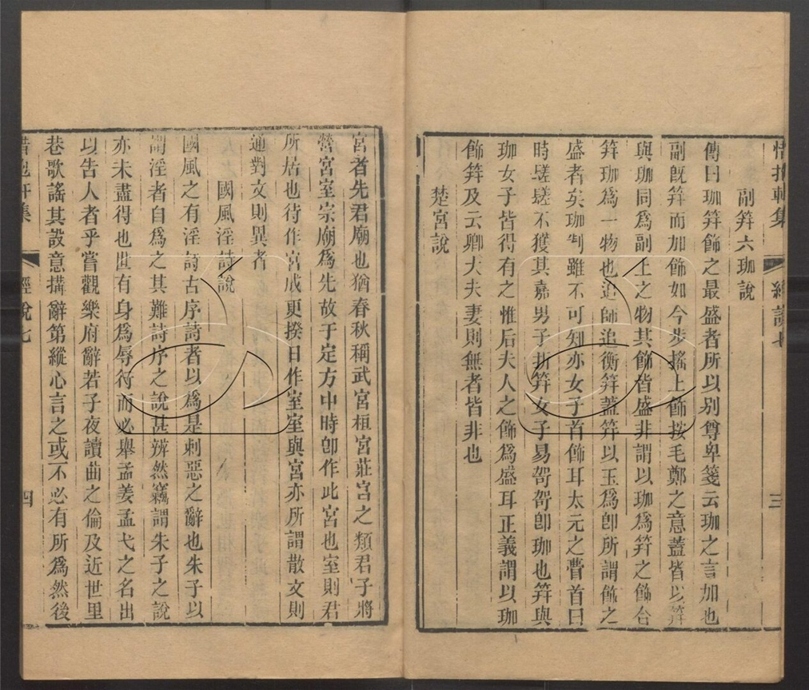 惜抱軒集 經說七 三
副笄六珈說
傳曰珈笄飾之最盛者所以别尊卑箋云珈之言加也
副旣笄而加飾如今步搖上飾按毛鄭之意蓋皆以笄
與珈同爲副上之物其飾皆盛非謂以珈爲笄之飾合
笄珈爲一物也追師追衡笄蓋笄以玉爲卽所謂飾之
盛者矣珈制雖不可知亦女子首飾耳太元之瞢首曰
時𥈭𥈭不獲其嘉男子折笄女子易哿哿卽珈也笄與
珈女子皆得有之惟后夫人之飾爲盛耳正義謂以珈
飾笄及云卿大夫妻則無者皆非也
楚宮說
宮者先君廟也猶春秋稱武宮桓宮莊宮之類君子將
營宮室宗廟爲先故于定方中時卽作此宮也室則君
所居也待作宮成更揆日作室室與宮亦所謂散文則
通對文則異者
國風淫詩說
國風之有淫詩古序詩者以爲是刺惡之辭也朱子以
謂淫者自爲之其難詩序之說甚辨然竊謂朱子之說
亦未盡得也世有身爲辱行而必舉孟姜孟弋之名出
以告人者乎嘗觀樂府辭若子夜讀曲之倫及近世里
巷歌謠其設意搆辭第縱心言之或不必有所爲然後
惜抱軒集 經說七 四